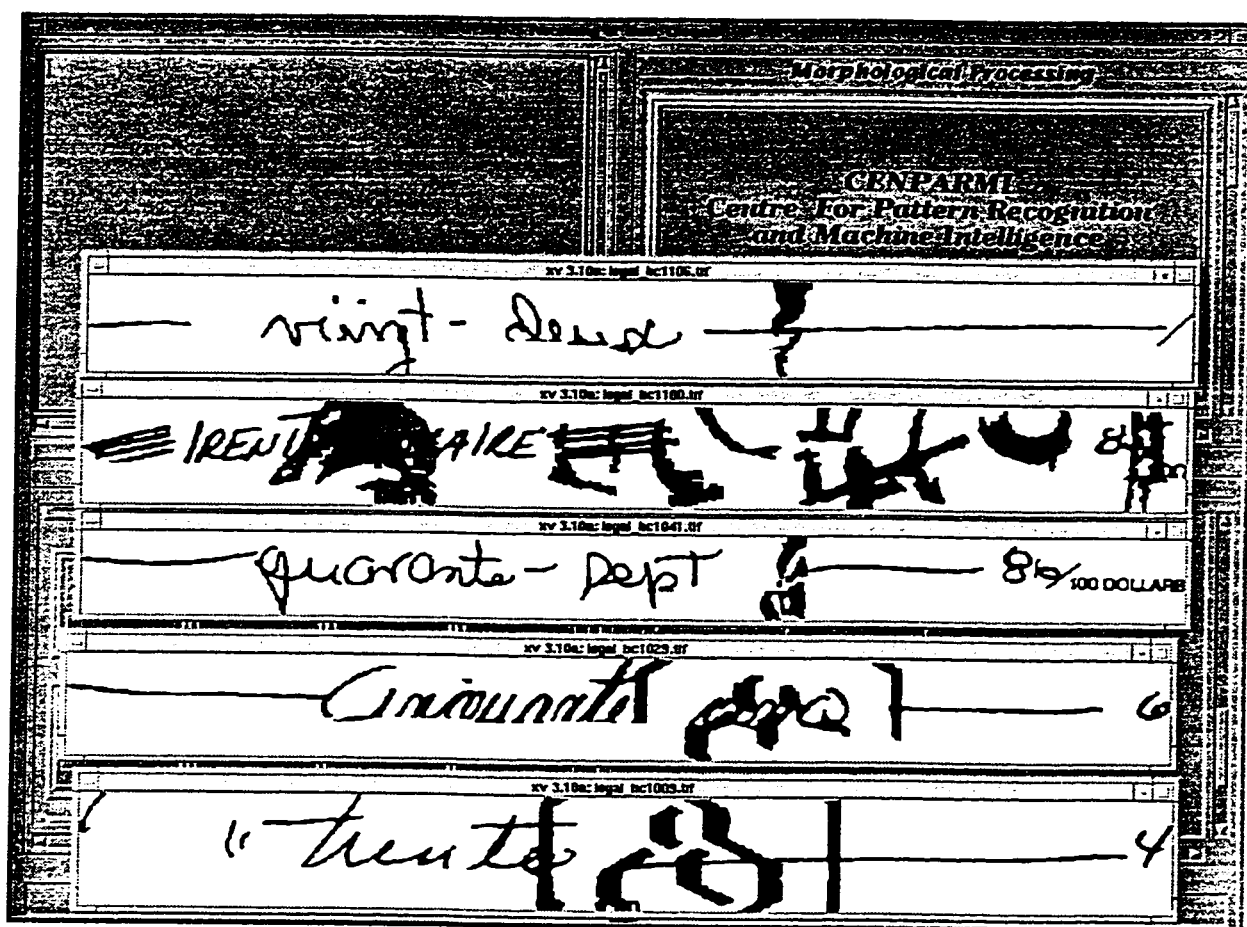 Morphological Processing
CENPARMI
Centre For Pattern Recognition
and Machine Intelligence
xv 3.10a: legal_bc1106.tif
viingt - Deux
xv 3.10a: legal_bc1180.tif
AIRE
xv 3.10a: legal_bc1041.tif
quarante - Sept
100 DOLLARS
xv 3.10a: legal_bc1029.tif
6
xv 3.10a: legal_bc1009.tif
" trente
4